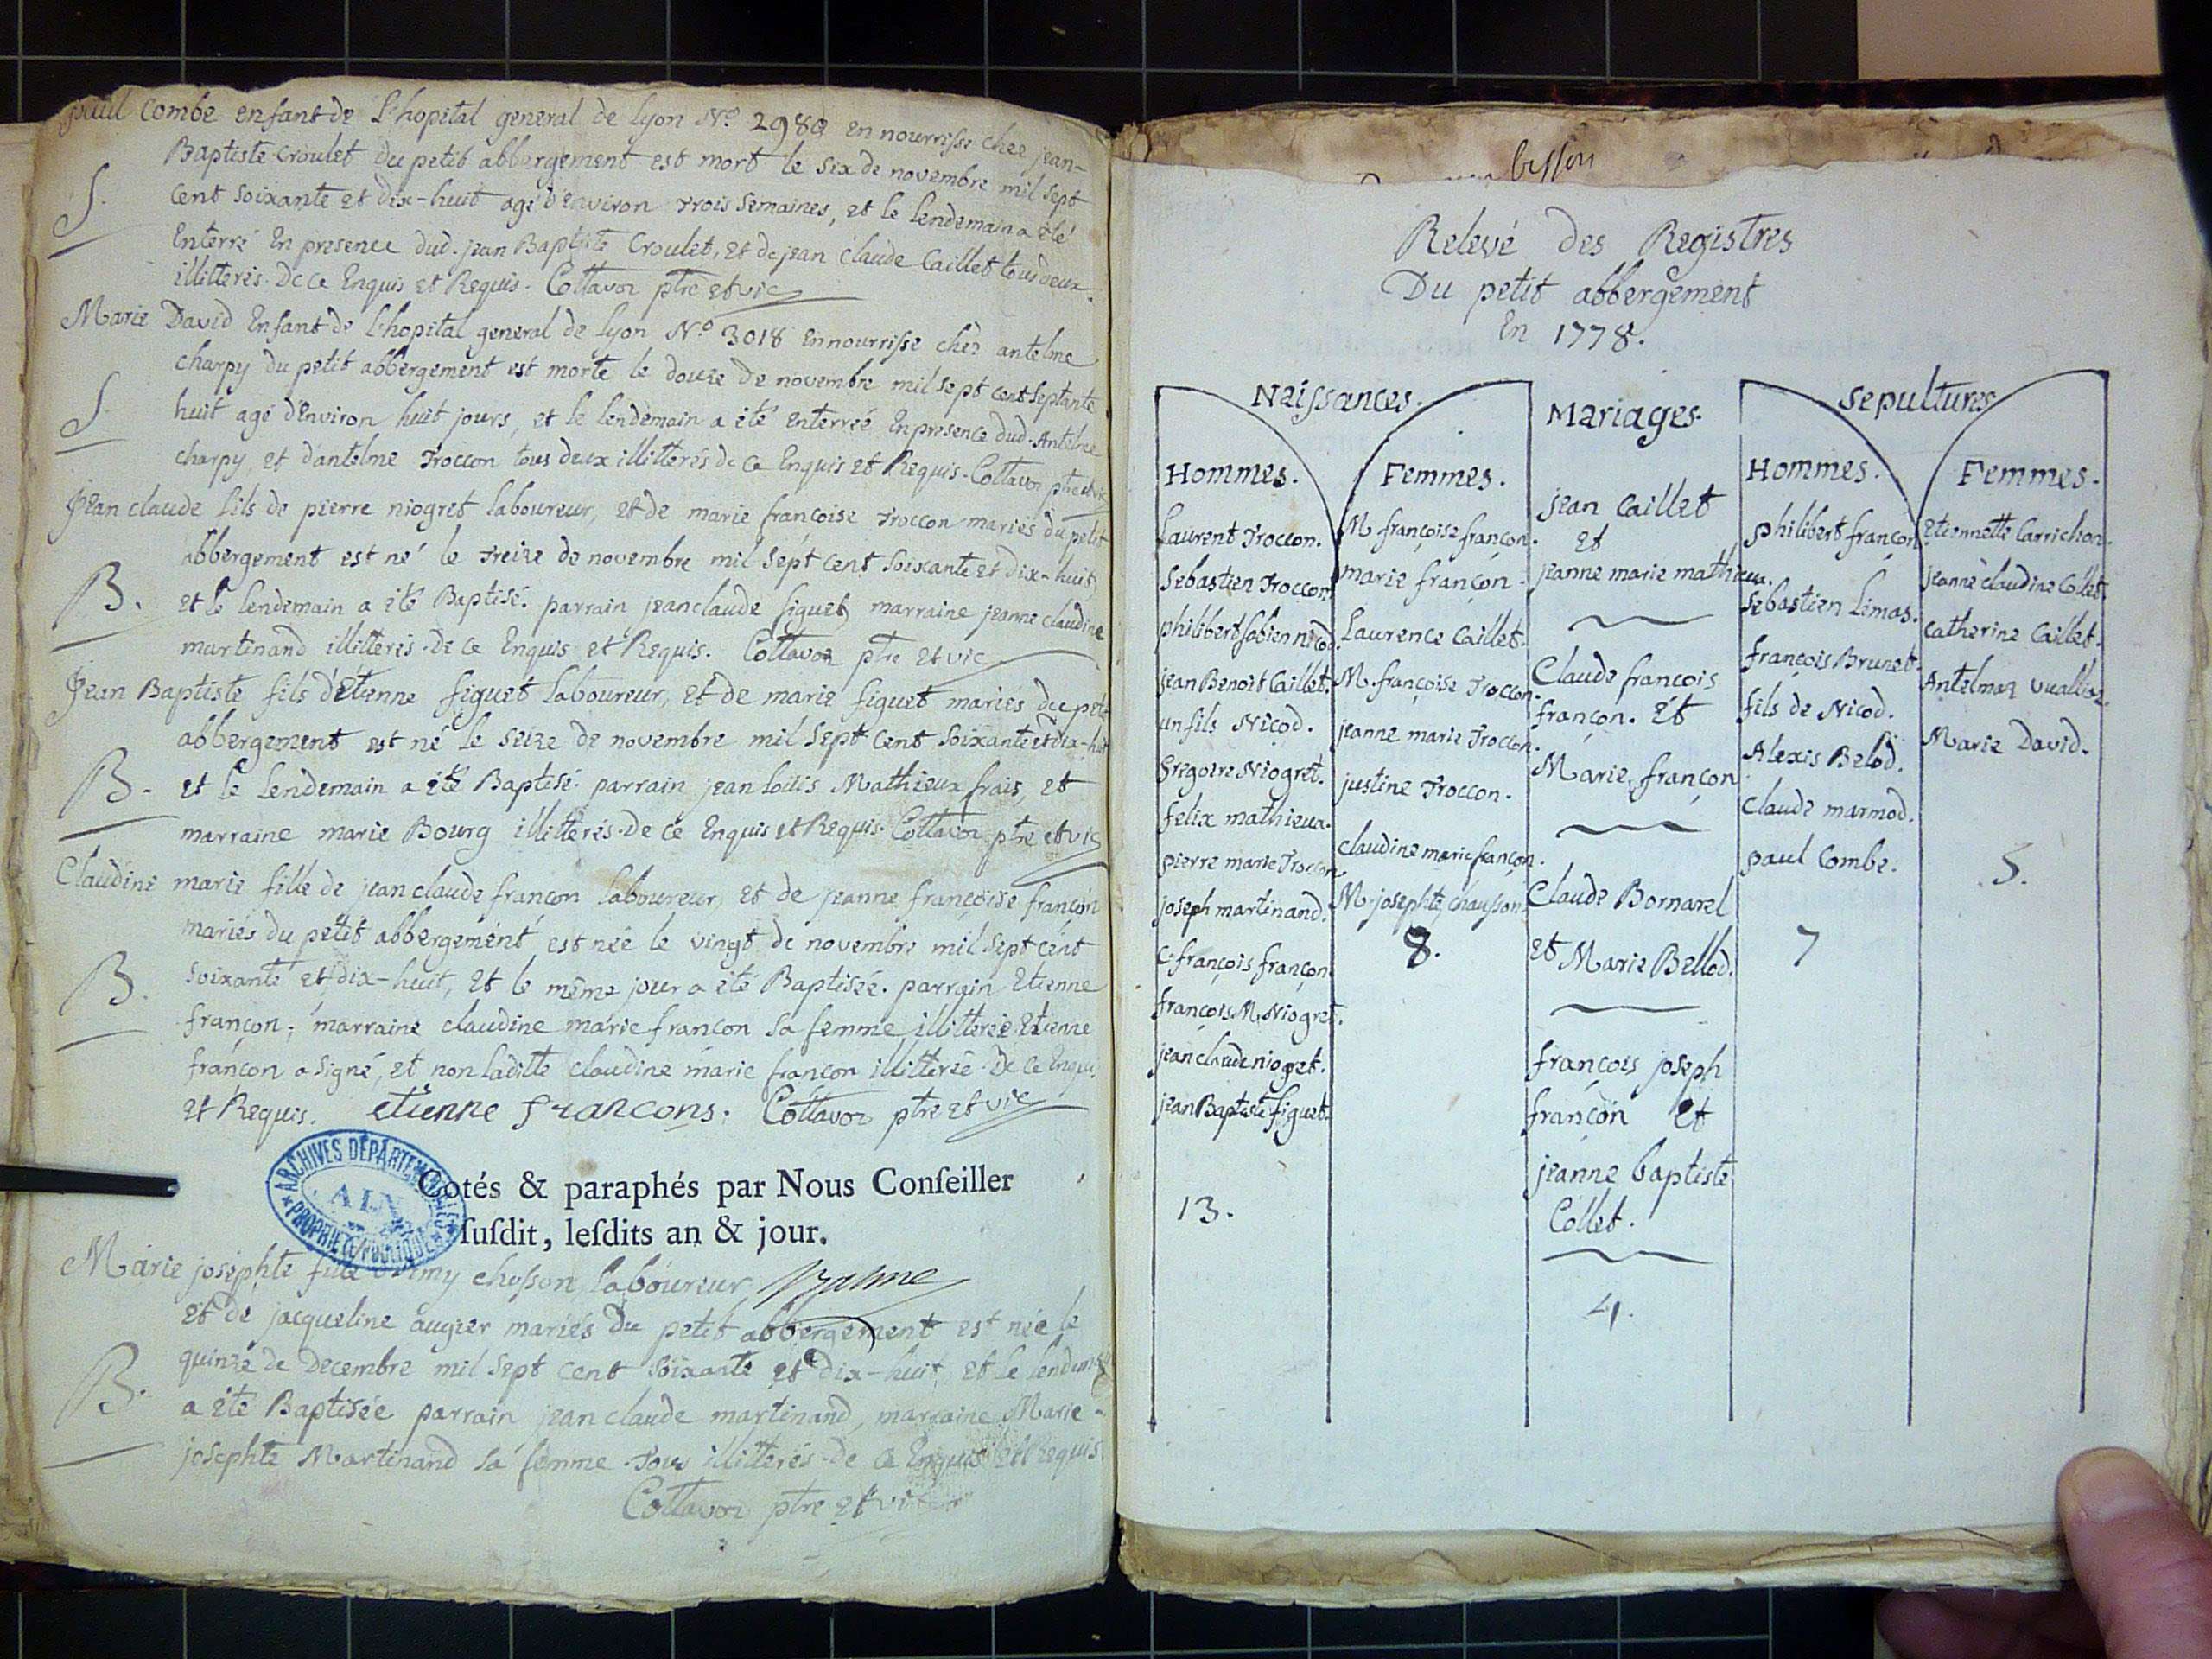 paul Combe enfant de L'hopital general de lyon N.º 2980 en nourrisse chez jean-
Baptiste Croulet du petit abbergement est mort le six de novembre mil sept
S. Cent soixante et dix-huit agé d'Environ trois semaines, et le lendemain a eté
Enterré En presence dud. jean Baptiste Croulet, et de jean claude Caillet tous deux
illitterés. De ce Enquis et Requis. Cottavoz ptre et vic
Marie David Enfant de L'hopital general de lyon N.º 3018 en nourrisse chéz antelme
charpy du petit abbergement est morte le douze de novembre mil sept cent septante
S. huit agé d'Environ huit jours, et le lendemain a eté enterrée En presence dud. Antelme
charpy, et d'antelme Troccon tous deux illitterés de ce Enquis et Requis. Cottavoz ptre et vic
Jean claude fils de pierre niogret laboureur, et de marie françoise Troccon mariés du petit
abbergement est né le treize de novembre mil sept cent soixante et dix-huit,
B. et le lendemain a eté Baptisé. parrain jean claude figuet, marraine jeanne claudine
martinand illitterés. de ce Enquis et Requis. Cottavoz ptre et vic
Jean Baptiste fils d'Etienne figuet laboureur, et de marie figuet mariés du petit
abbergement est né le seize de novembre mil sept cent soixante et dix-huit
B. et le lendemain a eté Baptisé. parrain jean loüis Mathieux frais, et
marraine marie Bourg illitterés. de ce Enquis et Requis. Cottavoz ptre et vic
Claudine marie fille de jean claude françon laboureur, et de jeanne françoise françon
mariés du petit abbergement est née le vingt de novembre mil sept cent
B. soixante et dix-huit, et le même jour a eté Baptisée. parrain Etienne
françon, marraine claudine marie françon sa femme, illitterée. Etienne
françon a signé, et non laditte claudine marie françon illitterée. De ce Enquis
et Requis. etienne francons. Cottavoz ptre et vic
ARCHIVES DÉPARTEMENTALES
AIN
PROPRIÉTÉ PUBLIQUE
Cotés & paraphés par Nous Conſeiller
ſuſdit, leſdits an & jour.
Marie josephte fille chosson laboureur
et de jacqueline augier mariés du petit abbergement est née le
quinze de decembre mil sept cent soixante et dix-huit, et le lendemain
B. a eté Baptisée parrain jean claude martinand, marraine Marie-
josephte Martinand sa femme tous illitterés. de ce Enquis et Requis.
Cottavoz ptre et vic
Relevé des Registres
Du petit abbergement
En 1778.
Naissances.
Hommes.
Laurent Troccon.
Sebastien Troccon
philibert fabien nicod.
jean Benoit Caillet.
un fils Nicod.
Gregoire Niogret.
felix mathieux.
pierre marie Troccon.
joseph martinand.
C. françois françon.
françois M. Niogret.
jean claude niogret.
jean Baptiste figuet.
13.
Femmes.
M. françoise françon.
marie françon.
Laurence Caillet.
M. françoise Troccon.
jeanne marie Troccon.
justine Troccon.
claudine marie françon.
M. josephte chausson.
8.
Mariages.
jean Caillet
et
jeanne marie mathieux.
Claude françois
françon. Et
Marie françon
Claude Bornarel
et Marie Bellod.
françois joseph
françon Et
jeanne baptiste
Collet.
4.
Sepultures
Hommes.
philibert françon
Sebastien Limas.
françois Brunet.
fils de Nicod.
Alexis Belod.
Claude marmod.
paul Combe.
7
Femmes.
Etiennette Carrichon.
jeanne claudine Collet.
Catherine Caillet.
Marie David.
5.